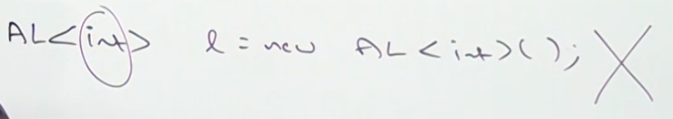 AL<int> l = new AL<int>();